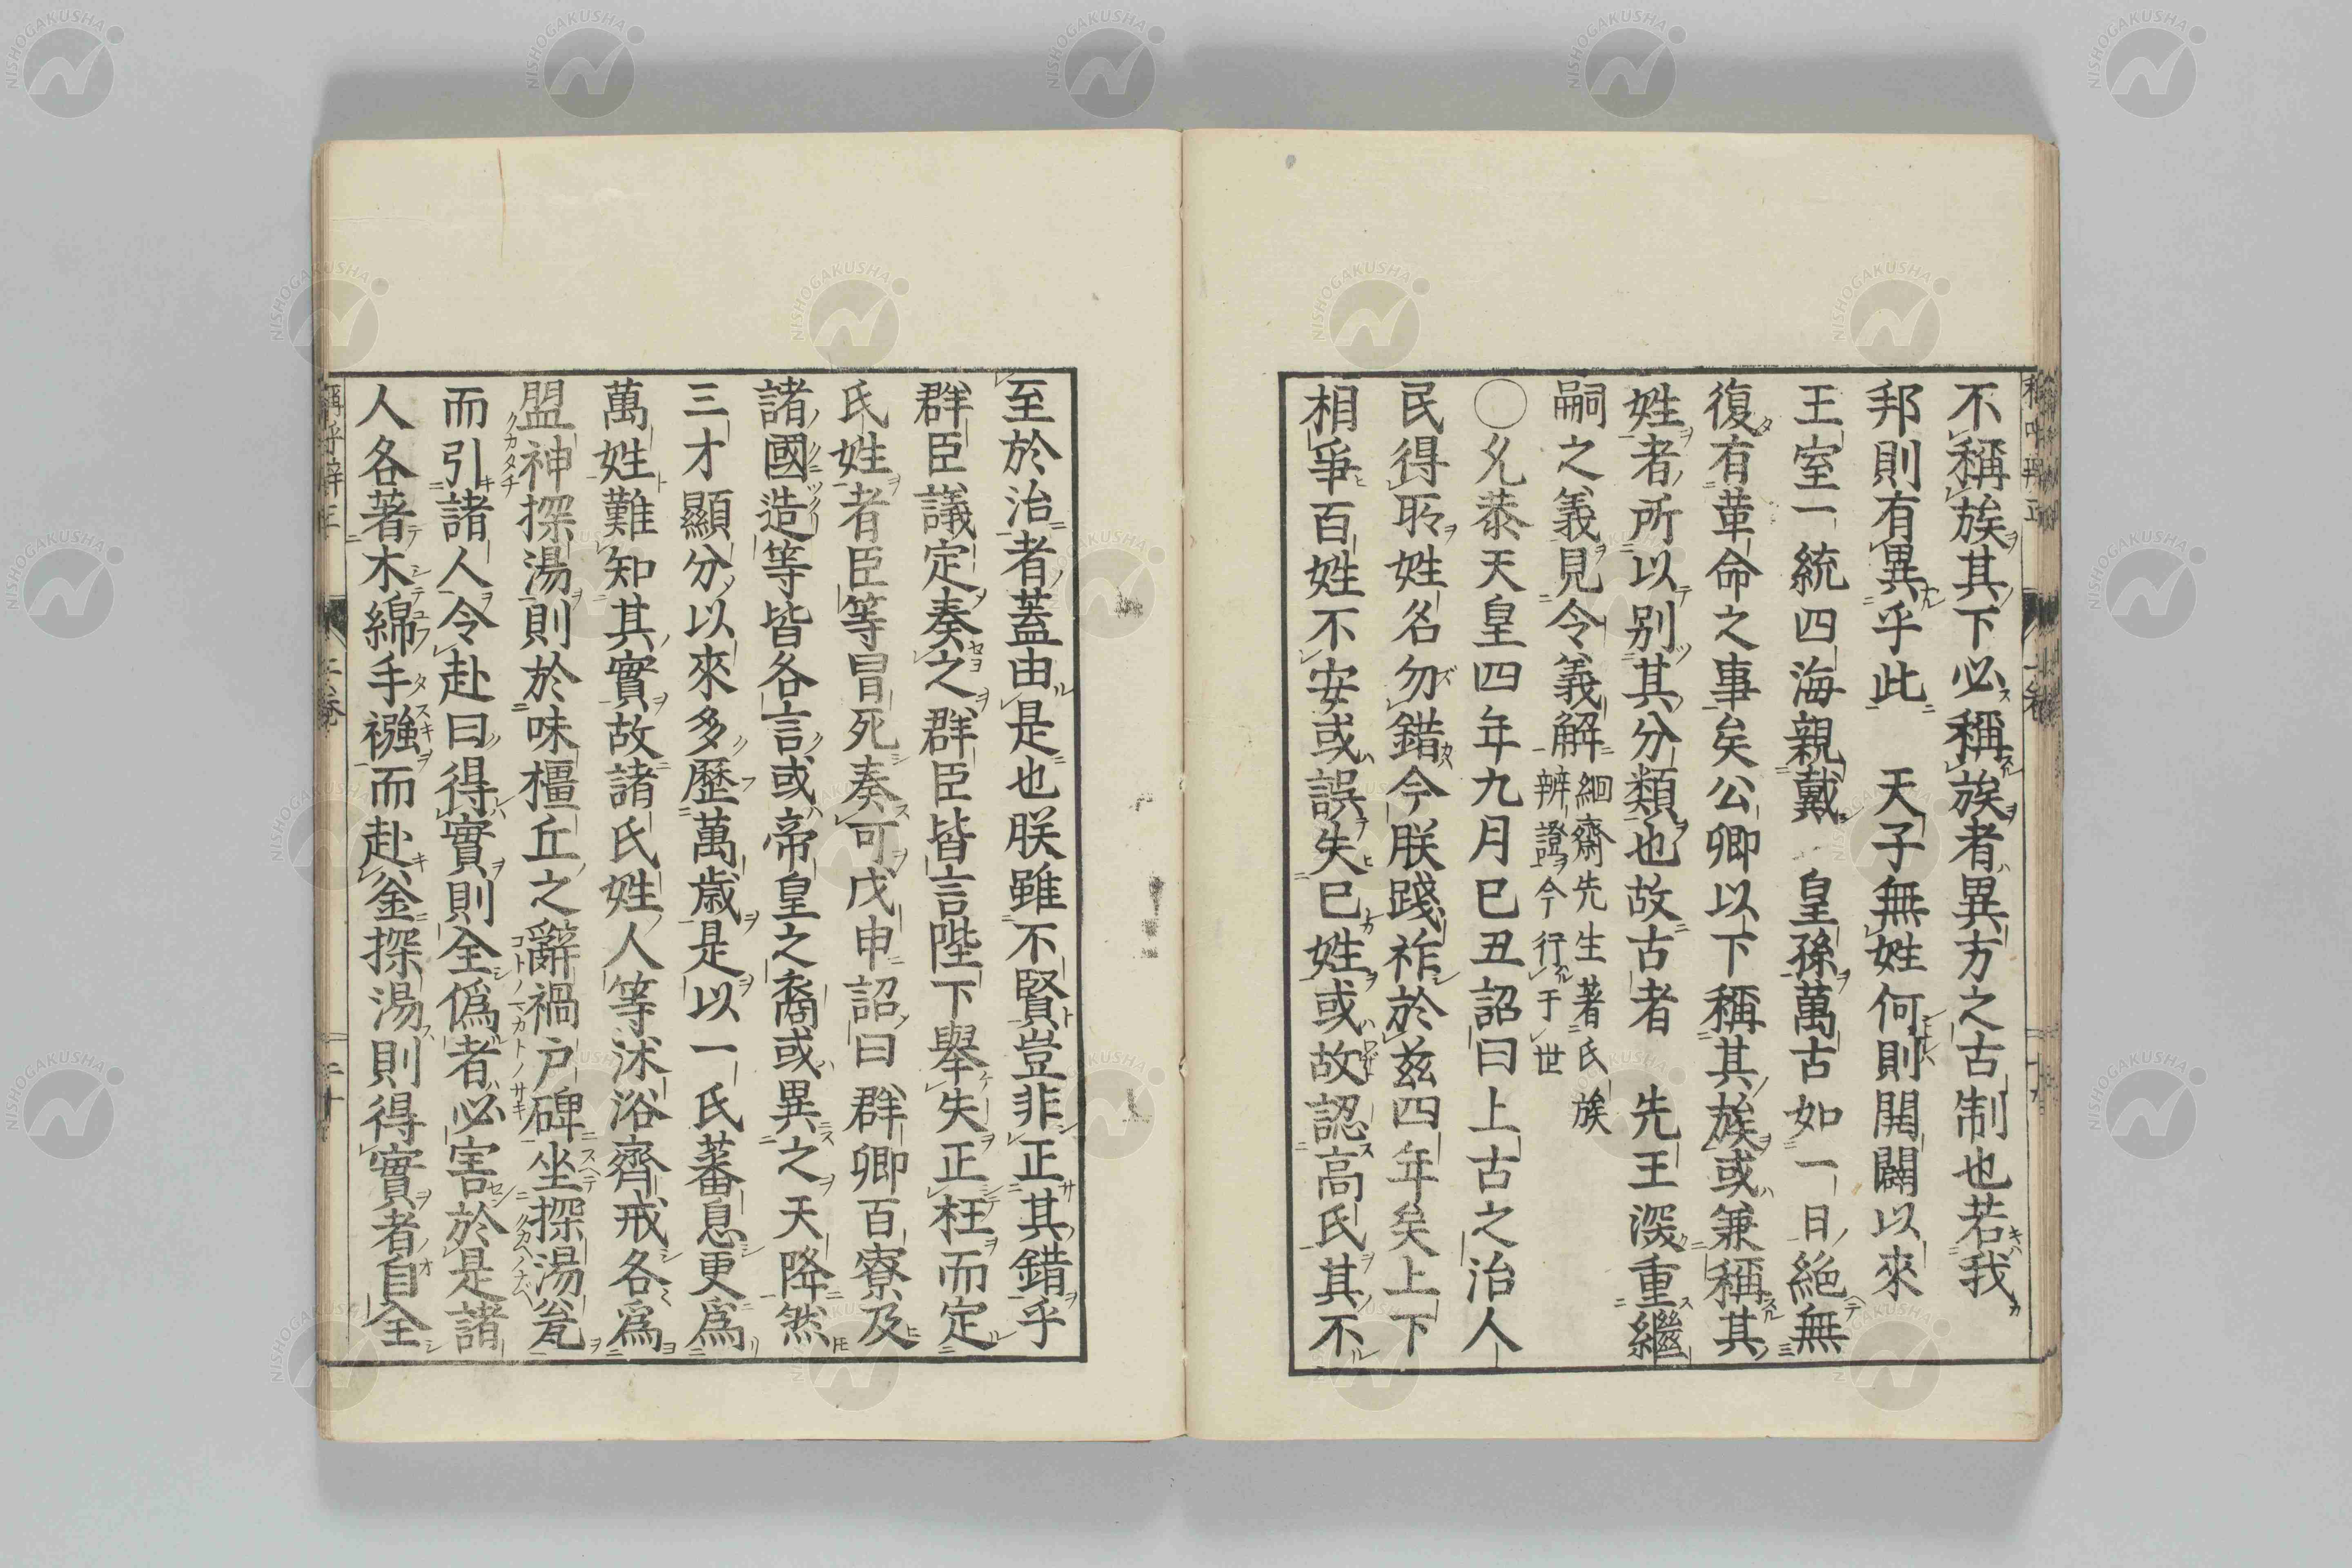 不稱族其下必稱族者異方之古制也若我
邦則有異乎此　天子無姓何則開闢以來
王室一統四海親戴　皇孫萬古如一日絕無
復有革命之事矣公卿以下稱其族或兼稱其
姓者所以別其分類也故古者　先王深重繼
嗣之義見令義解
絅齋先生著氏族
辨證今行于世
〇允恭天皇四年九月己丑詔曰上古之治人
民得所姓名勿錯今朕踐祚於茲四年矣上下
相爭百姓不安或誤失己姓或故認高氏其不
至於治者蓋由是也朕雖不賢豈非正其錯乎
群臣議定奏之群臣皆言陛下舉失正枉而定
氏姓者臣等冒死奏可戊申詔曰群卿百寮及
諸國造等皆各言或帝皇之裔或異之天降然
三才顯分以來多歷萬歲是以一氏蕃息更爲
萬姓難知其實故諸氏姓人等沐浴齊戒各爲
盟神探湯則於味橿丘之辭禍戶碑坐探湯瓮
而引諸人令赴曰得實則全僞者必害於是諸
人各著木綿手襁而赴釜探湯則得實者自全
NISHOGAKUSHA